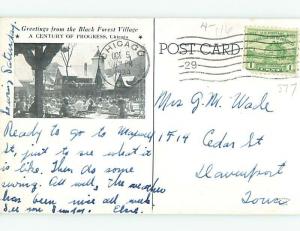 Greetings from the Black Forest Village
A CENTURY OF PROGRESS, Chicago
CHICAGO
OCT 5
POST CARD
-29-
Saturday.
Ready to go to
St, just to see what it
is like. Then do some
All well, The weather
has been nice all week
See me Sunday. 
Mrs G. M. Wade
1714 Cedar St
Davenport
Iowa
1
577